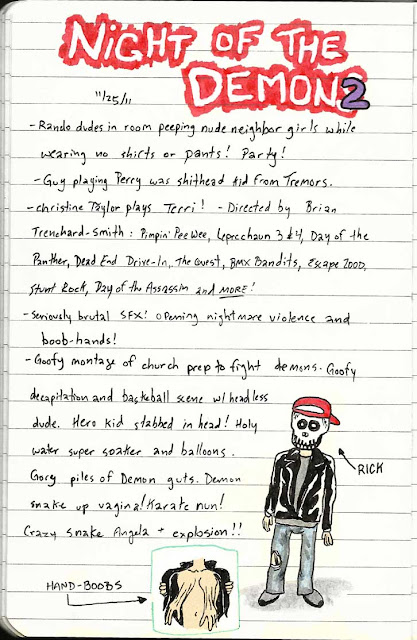 NIGHT OF THE
DEMONS 2
11/25/11
- Rando dudes in room peeping nude neighbor girls while
wearing no shirts or pants! Party!
- Guy playing Perry was shithead kid from Tremors.
- Christine Taylor plays Terri! - Directed by Brian
Trenchard-Smith: Pimpin' Pee Wee, Leprechaun 3 & 4, Day of the
Panther, Dead End Drive-In, The Quest, BMX Bandits, Escape 2000,
Stunt Rock, Day of the Assassin and MORE!
- Seriously brutal SFX! Opening nightmare violence and
boob-hands!
- Goofy montage of church prep to fight demons. Goofy
decapitation and basketball scene w/ headless
dude. Hero kid stabbed in head! Holy
water super soaker and balloons.
Gory piles of Demon guts. Demon
snake up vagina! Karate nun!
Crazy snake Angela + explosion!!
RICK
HAND-BOOBS